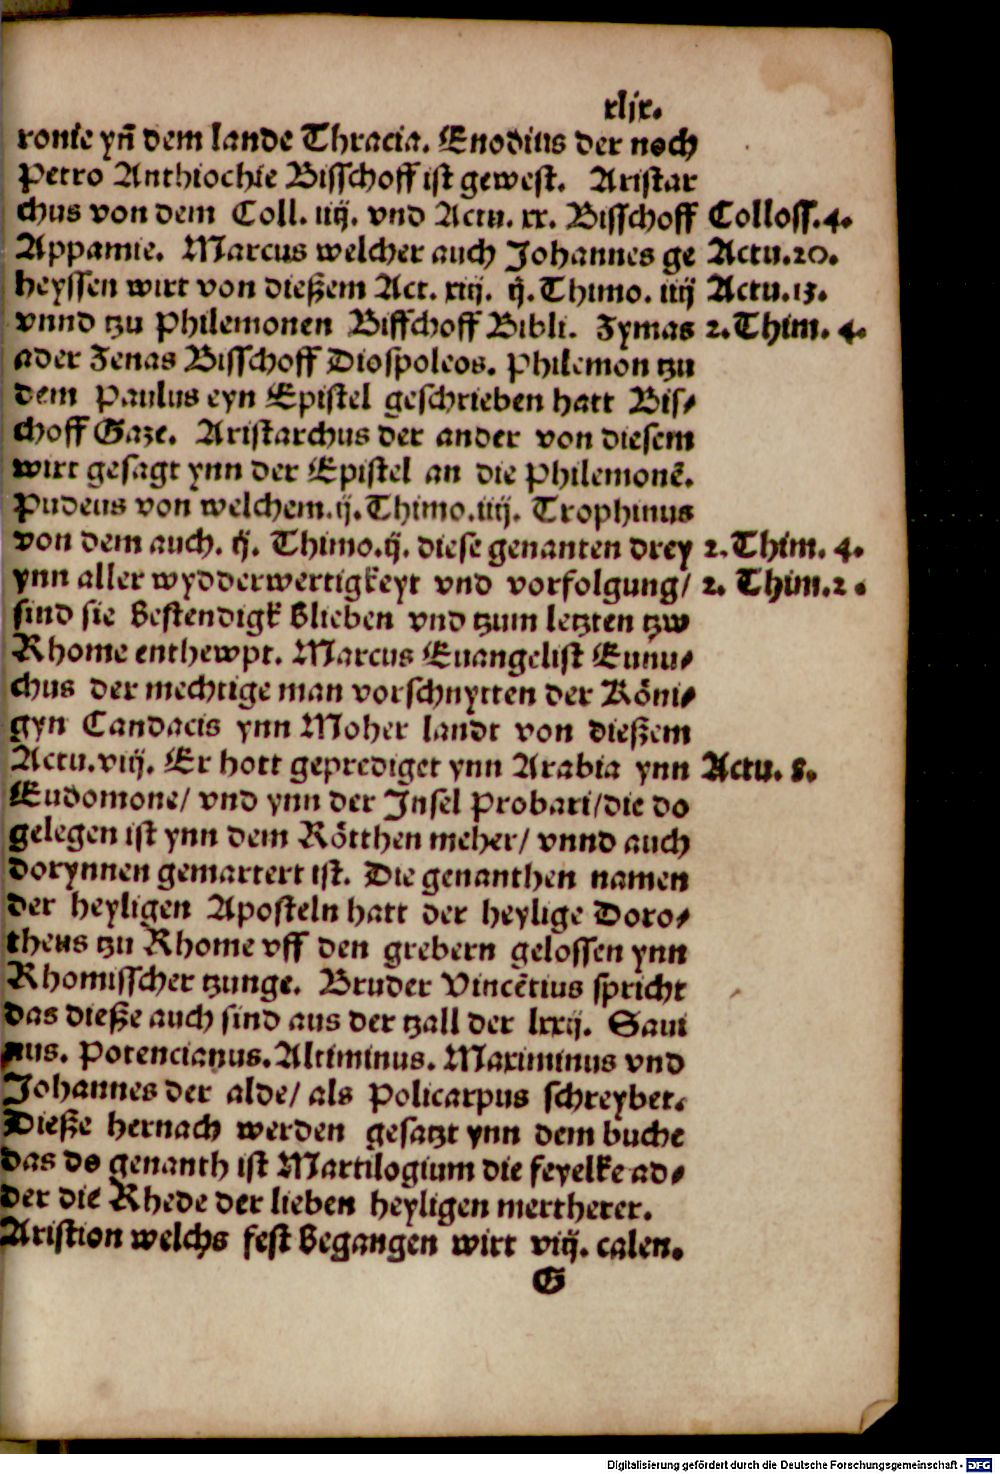 xlix.
ronie yn̄ dem lande Thracia. Enodius der noch
Petro Anthiochie Bisschoff ist gewest. Aristar
chus von dem Coll. iiij. vnd Actu. xx. Bisschoff Colloss.4.
Appamie. Marcus welcher auch Johannes ge Actu.20.
heyssen wirt von dießem Act. xiij. ij. Thimo. iiij Actu.13.
vnnd tzu Philemonen Bisschoff Bibli. Zymas 2.Thim. 4.
ader Zenas Bisschoff Diospoleos. Philemon tzu
dem Paulus eyn Epistel geschrieben hatt Bis⸗
choff Gaze. Aristarchus der ander von diesem
wirt gesagt ynn der Epistel an die Philemonē.
Pudeus von welchem.ij.Thimo.iiij. Trophinus
von dem auch. ij. Thimo.ij. diese genanten drey 2.Thim. 4.
ynn aller wydderwertigkeyt vnd vorfolgung/ 2. Thim.2.
sind sie bestendigk blieben vnd tzum letzten tzw
Rhome enthewpt. Marcus Euangelist Eunu⸗
chus der mechtige man vorschnytten der Köni⸗
gyn Candacis ynn Moher landt von dießem
Actu.viij. Er hott geprediget ynn Arabia ynn Actu. 8.
Eudomone/ vnd ynn der Insel Probari/die do
gelegen ist ynn dem Rötthen meher/ vnnd auch
dorynnen gemartert ist. Die genanthen namen
der heyligen Aposteln hatt der heylige Doro⸗
theus tzu Rhome vff den grebern gelossen ynn
Rhomisscher tzunge. Bruder Vincētius spricht
das dieße auch sind aus der tzall der lxxij. Saui
nus. Potencianus.Altiminus. Maximinus vnd
Johannes der alde/ als Policarpus schreybet.
Dieße hernach werden gesatzt ynn dem buche
das do genanth ist Martilogium die feyelke ad⸗
der die Rhede der lieben heyligen mertherer.
Aristion welchs fest begangen wirt viij. calen.
G
Digitalisierung gefördert durch die Deutsche Forschungsgemeinschaft - DFG